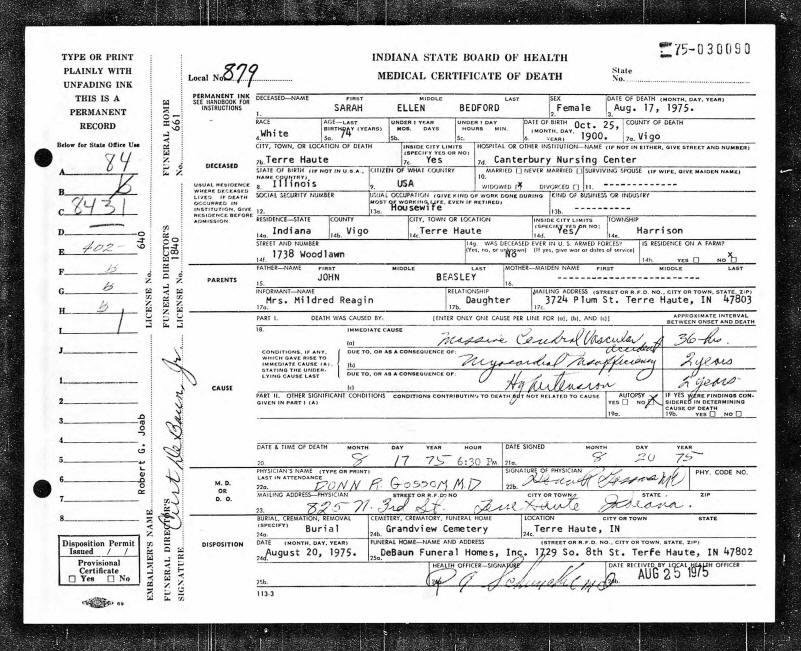 INDIANA STATE BOARD OF HEALTH
MEDICAL CERTIFICATE OF DEATH
75-030090
Local No. 879
State No.
TYPE OR PRINT
PLAINLY WITH
UNFADING INK
THIS IS A
PERMANENT
RECORD
Below for State Office Use
A 84
B
C 8431
D
E 402-
F
G
H
I
J
1
2
3
4
5
6
7
8
Disposition Permit
Issued / /
Provisional
Certificate
Yes No
EMBALMER'S NAME Robert G. Joab LICENSE No. 640
FUNERAL DIRECTOR'S SIGNATURE Curt DeBaun Jr.
FUNERAL DIRECTOR'S LICENSE No. 1840
FUNERAL HOME No. 661
PERMANENT INK
SEE HANDBOOK FOR
INSTRUCTIONS
DECEASED—NAME FIRST MIDDLE LAST SEX DATE OF DEATH (MONTH, DAY, YEAR)
1. SARAH ELLEN BEDFORD 2. Female 3. Aug. 17, 1975.
RACE AGE—LAST BIRTHDAY (YEARS) UNDER 1 YEAR MOS. DAYS UNDER 1 DAY HOURS MIN. DATE OF BIRTH (MONTH, DAY, YEAR) COUNTY OF DEATH
4. White 5a. 74 5b. 5c. 6. Oct. 25, 1900. 7a. Vigo
DECEASED
CITY, TOWN, OR LOCATION OF DEATH INSIDE CITY LIMITS (SPECIFY YES OR NO) HOSPITAL OR OTHER INSTITUTION—NAME (IF NOT IN EITHER, GIVE STREET AND NUMBER)
7b. Terre Haute 7c. Yes 7d. Canterbury Nursing Center
USUAL RESIDENCE
WHERE DECEASED
LIVED IF DEATH
OCCURRED IN
INSTITUTION, GIVE
RESIDENCE BEFORE
ADMISSION.
STATE OF BIRTH (IF NOT IN U.S.A., NAME COUNTRY) CITIZEN OF WHAT COUNTRY MARRIED NEVER MARRIED SURVIVING SPOUSE (IF WIFE, GIVE MAIDEN NAME)
8. Illinois 9. USA 10. WIDOWED X DIVORCED 11. ---------------
SOCIAL SECURITY NUMBER USUAL OCCUPATION (GIVE KIND OF WORK DONE DURING MOST OF WORKING LIFE, EVEN IF RETIRED) KIND OF BUSINESS OR INDUSTRY
12. 13a. Housewife 13b. ---------------
RESIDENCE—STATE COUNTY CITY, TOWN OR LOCATION INSIDE CITY LIMITS (SPECIFY YES OR NO) TOWNSHIP
14a. Indiana 14b. Vigo 14c. Terre Haute 14d. Yes 14e. Harrison
STREET AND NUMBER 14g. WAS DECEASED EVER IN U.S. ARMED FORCES? (Yes, no, or unknown) (If yes, give war or dates of service) IS RESIDENCE ON A FARM?
14f. 1738 Woodlawn No 14h. YES NO X
PARENTS
FATHER—NAME FIRST MIDDLE LAST MOTHER—MAIDEN NAME FIRST MIDDLE LAST
15. JOHN BEASLEY 16. ---------------
INFORMANT—NAME RELATIONSHIP MAILING ADDRESS (STREET OR R.F.D. NO., CITY OR TOWN, STATE, ZIP)
17a. Mrs. Mildred Reagin 17b. Daughter 17c. 3724 Plum St. Terre Haute, IN 47803
PART I. DEATH WAS CAUSED BY: [ENTER ONLY ONE CAUSE PER LINE FOR (a), (b), AND (c)] APPROXIMATE INTERVAL BETWEEN ONSET AND DEATH
18. IMMEDIATE CAUSE
(a) Massive Cerebral Vascular accident 36 hrs.
CONDITIONS, IF ANY,
WHICH GAVE RISE TO
IMMEDIATE CAUSE (A),
STATING THE UNDER-
LYING CAUSE LAST
DUE TO, OR AS A CONSEQUENCE OF:
(b) Myocardial Insufficiency 2 years
DUE TO, OR AS A CONSEQUENCE OF:
(c) Hypertension 2 years
CAUSE
PART II. OTHER SIGNIFICANT CONDITIONS CONDITIONS CONTRIBUTING TO DEATH BUT NOT RELATED TO CAUSE GIVEN IN PART I (A)
AUTOPSY YES NO X 19a.
IF YES WERE FINDINGS CONSIDERED IN DETERMINING CAUSE OF DEATH 19b. YES NO
DATE & TIME OF DEATH MONTH DAY YEAR HOUR DATE SIGNED MONTH DAY YEAR
20. 8 17 75 6:30 PM 21a. 8 20 75
M. D.
OR
D. O.
PHYSICIAN'S NAME (TYPE OR PRINT) LAST IN ATTENDANCE SIGNATURE OF PHYSICIAN PHY. CODE NO.
22a. DONN R. GOSSOM MD 22b. Donn R Gossom MD
MAILING ADDRESS—PHYSICIAN STREET OR R.F.D. NO CITY OR TOWN STATE ZIP
23. 825 N. 3rd St. Terre Haute Indiana.
DISPOSITION
BURIAL, CREMATION, REMOVAL (SPECIFY) CEMETERY, CREMATORY, FUNERAL HOME LOCATION CITY OR TOWN STATE
24a. Burial 24b. Grandview Cemetery 24c. Terre Haute, IN
DATE (MONTH, DAY, YEAR) FUNERAL HOME—NAME AND ADDRESS (STREET OR R.F.D. NO., CITY OR TOWN, STATE, ZIP)
24d. August 20, 1975. 25a. DeBaun Funeral Homes, Inc. 1729 So. 8th St. Terfe Haute, IN 47802
HEALTH OFFICER—SIGNATURE DATE RECEIVED BY LOCAL HEALTH OFFICER
25b. AUG 25 1975
113-3